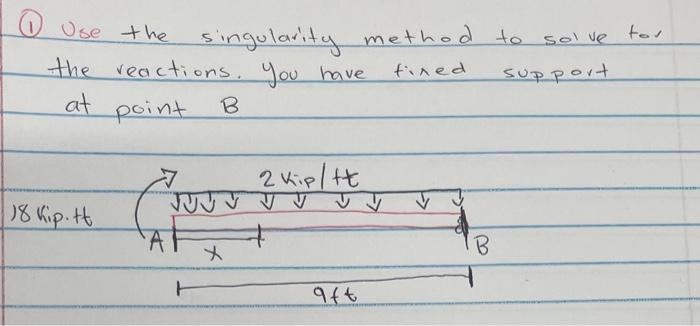 ① Use the singularity method to solve for
the reactions. You have fixed support
at point B
2 kip/ft
18 kip.ft
A
B
x
9ft